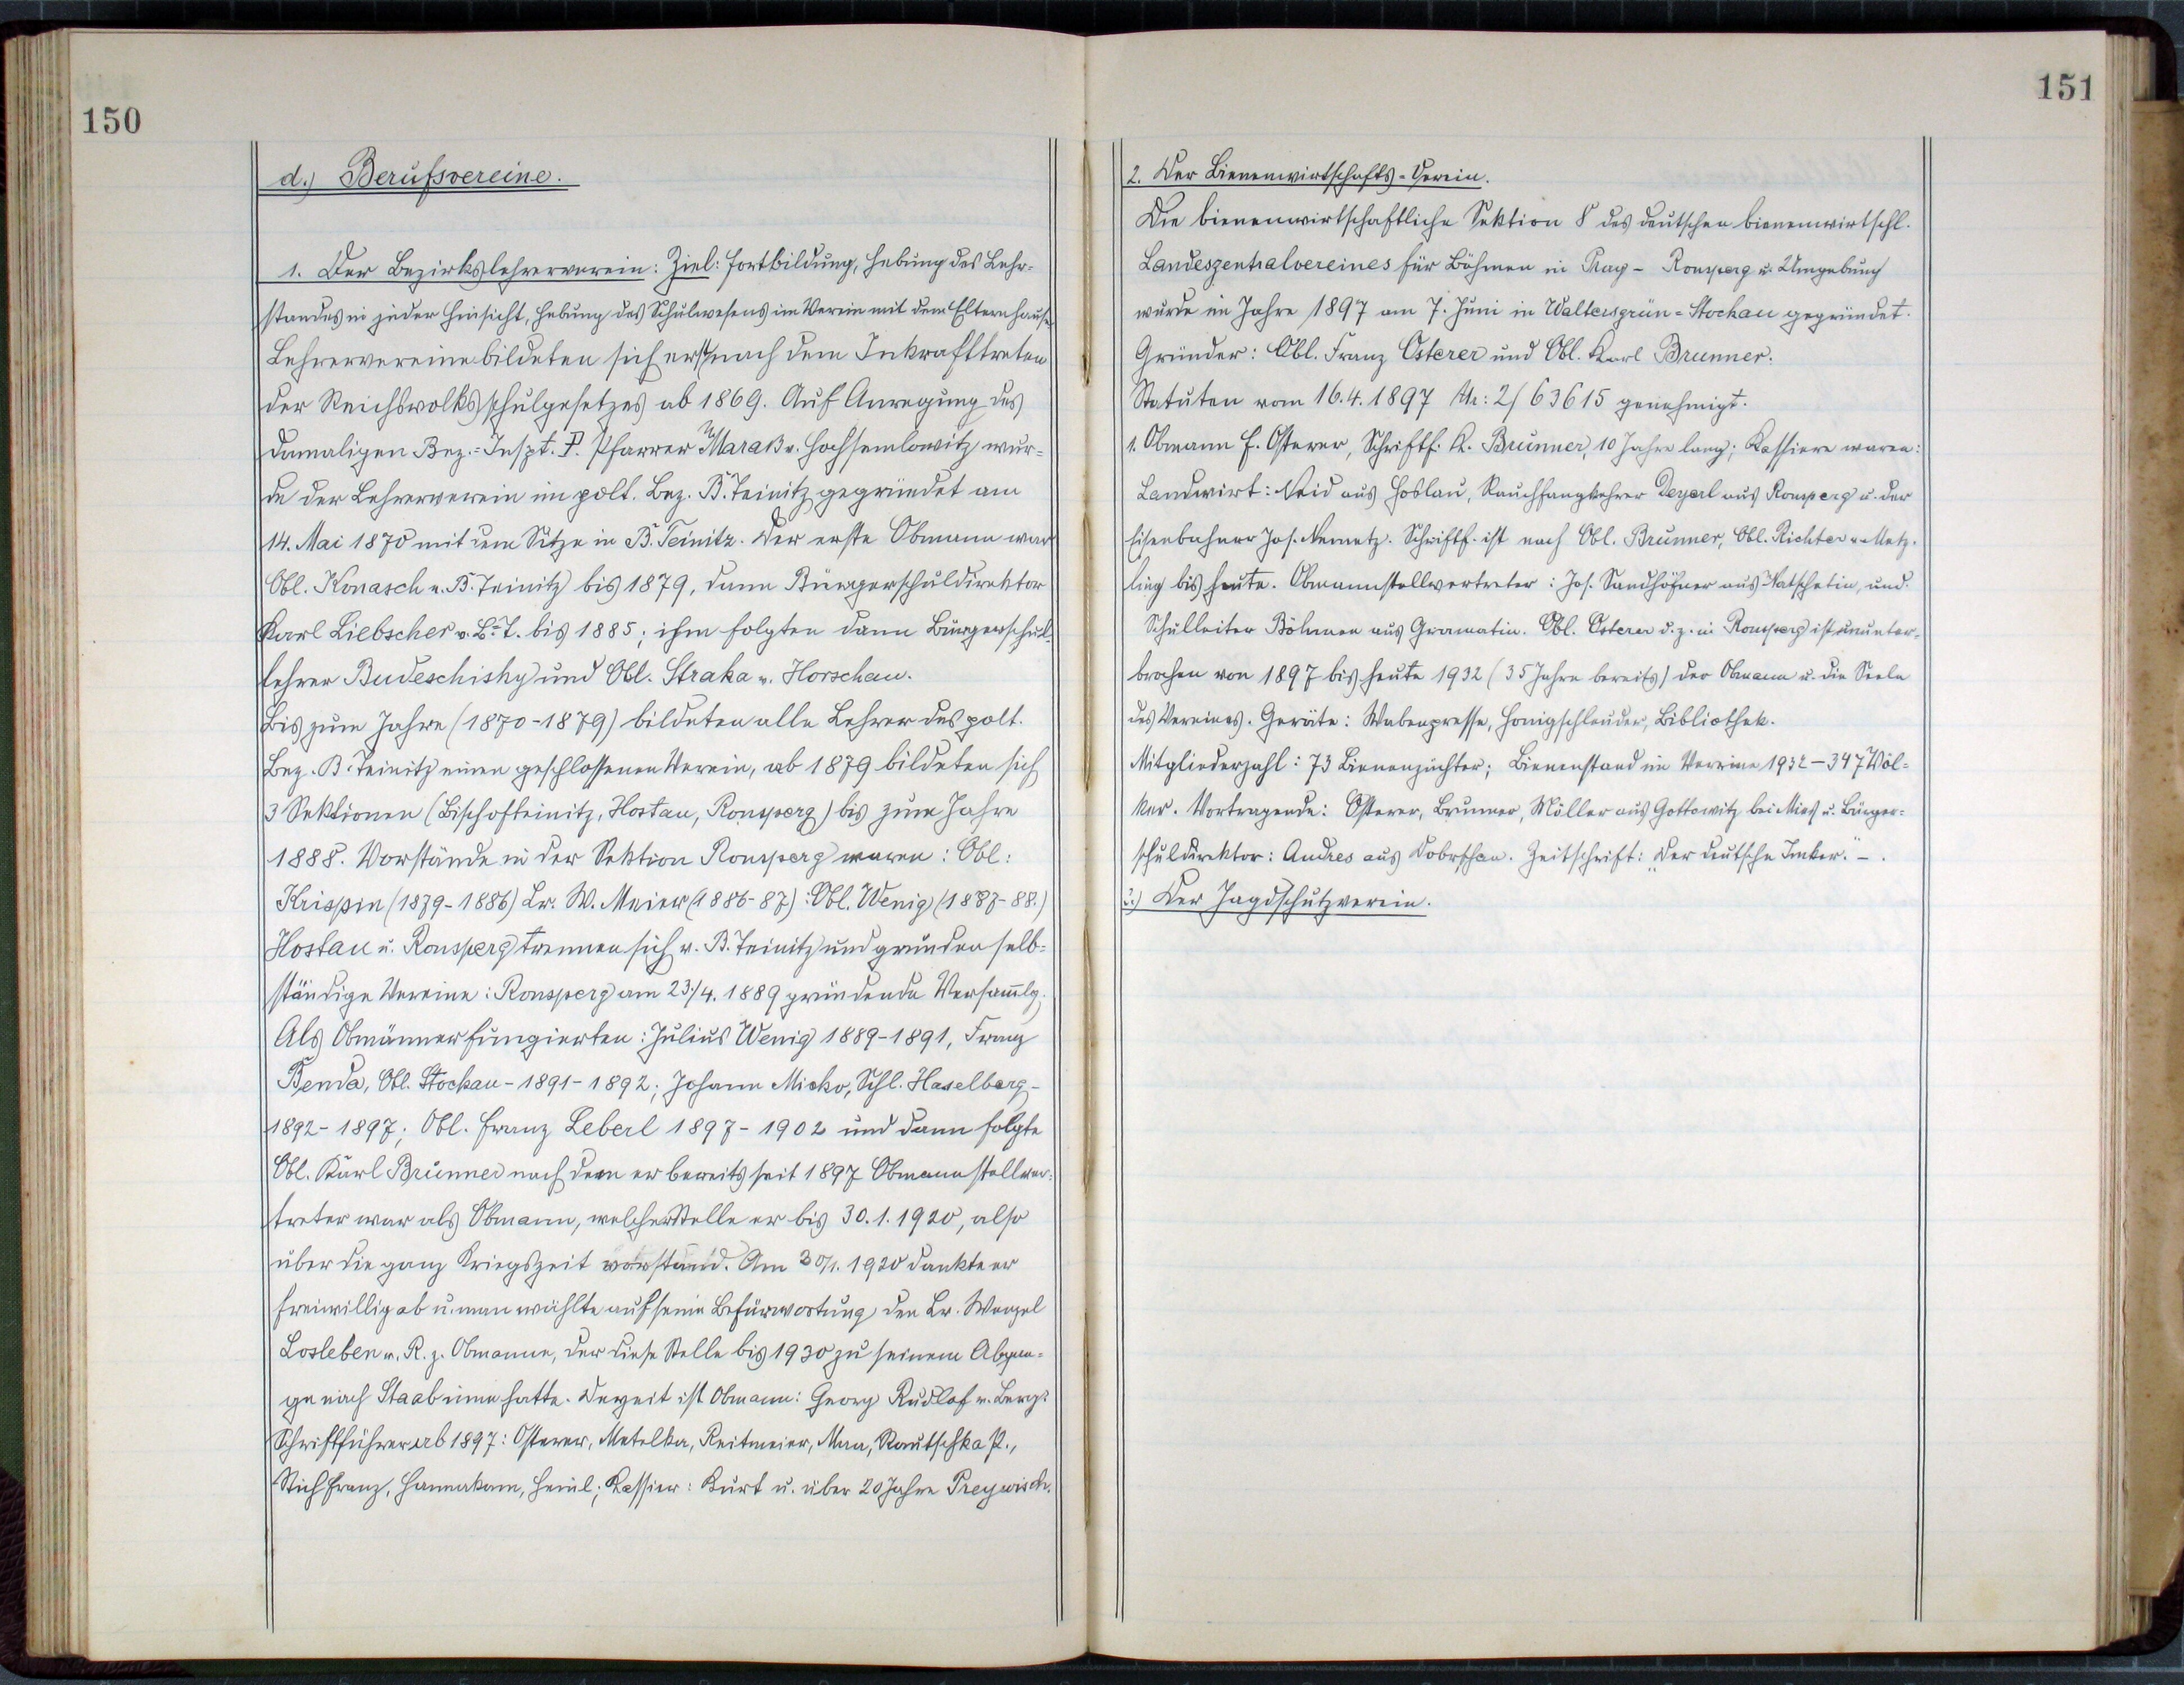 150
d.) Berufsvereine.
1. Der Bezirkslehrerverein: Ziel: Fortbildung, Hebung des Lehr-
standes in jeder Hinsicht, Hebung des Schulwesens im Verein mit dem Elternhause
Lehrervereine bildeten sich erst nach dem Inkrafttreten
der Reichsvolksschulgesetzes ab 1869. Auf Anregung des
damaligen Bez.-Inspt. P. Pfarrer Maraß v. Hochsemlowitz wur-
de der Lehrerverein im polt. Bez. B. Teinitz gegründet am
14. Mai 1870 mit dem Sitze in B. Teinitz. Der erste Obmann war
Obl. Konasch v. B. Teinitz bis 1879, dann Bürgerschuldirektor
Karl Liebscher v. B.-T. bis 1885; ihm folgten dann Bürgerschul-
lehrer Budeschisky und Obl. Straka v. Horschau.
Bis zum Jahre (1870-1879) bildeten alle Lehrer des polt.
Bez. B. Teinitz einen geschlossenen Verein, ab 1879 bildeten sich
3 Sektionen (Bischofteinitz, Hostau, Ronsperg) bis zum Jahre
1888. Vorstände in der Sektion Ronsperg waren: Obl:
Krispin (1879-1886) Lr. W. Meier (1886-87): Obl. Wenig (1887-88.)
Hostau u. Ronsperg trennen sich v. B. Teinitz und gründen selb-
ständige Vereine: Ronsperg am 23./4. 1889 gründende Versammlg.
Als Obmänner fungierten: Julius Wenig 1889-1891, Franz
Benda, Obl. Stockau - 1891-1892; Johann Micko, Schl. Haselberg -
1892-1897; Obl. Franz Leberl 1897-1902 und dann folgte
Obl. Karl Brunner nach dem er bereits seit 1897 Obmannstellver-
treter war als Obmann, welcher Stelle er bis 30.1.1920, also
über die ganz Kriegszeit vorstand. Am 30/1. 1920 dankte er
freiwillig ab u. man wählte auf seine Befürwortung den Lr. Wenzel
Losleben v. R. z. Obmanne, der diese Stelle bis 1930 zu seinem Abgan-
ge nach Staab inne hatte. Derzeit ist Obmann: Georg Rudlof v. Berg.
Schriftführer ab 1897: Osterer, Metelka, Reitmeier, Maa, Rautschka P.,
Stich Franz, Hannakam, Heinl; Kassier: Kurt u. über 20 Jahre Preywisch.
151
2. Der Bienenwirtschafts-Verein.
Die bienenwirtschaftliche Sektion 8 des deutschen bienenwirtschl.
Landeszentralvereines für Böhmen in Prag - Ronsperg u. Umgebung
wurde im Jahre 1897 am 7. Juni in Waltersgrün-Stockau gegründet.
Gründer: Obl. Franz Osterer und Obl. Karl Brunner.
Statuten vom 16.4.1897 Nr: 2/63615 genehmigt.
1. Obmann F. Osterer, Schriftf. K. Brunner, 10 Jahre lang; Kassiere waren:
Landwirt: Neid aus Hoslau, Rauchfangkehrer Deyerl aus Ronsperg u. der
Eisenbahner Jos. Nemetz. Schriftf. ist nach Obl. Brunner, Obl. Richter v. Metz-
ling bis heute. Obmannstellvertreter: Jos. Sandhöfner aus Natschetin, und
Schulleiter Böhmen aus Gramatin. Obl. Osterer d.z. in Ronsperg ist ununter-
brochen von 1897 bis heute 1932 (35 Jahre bereits) der Obmann u. die Seele
des Vereines. Geräte: Wabenpresse, Honigschleuder, Bibliothek.
Mitgliederzahl: 73 Bienenzüchter; Bienenstand im Vereine 1932 - 347 Völ-
ker. Vortragende: Osterer, Brunner, Möller aus Gottowitz bei Mies u. Bürger-
schuldirektor: Andres aus Dobrschan. Zeitschrift: "Der deutsche Imker." -.
3.) Der Jagdschutzverein.